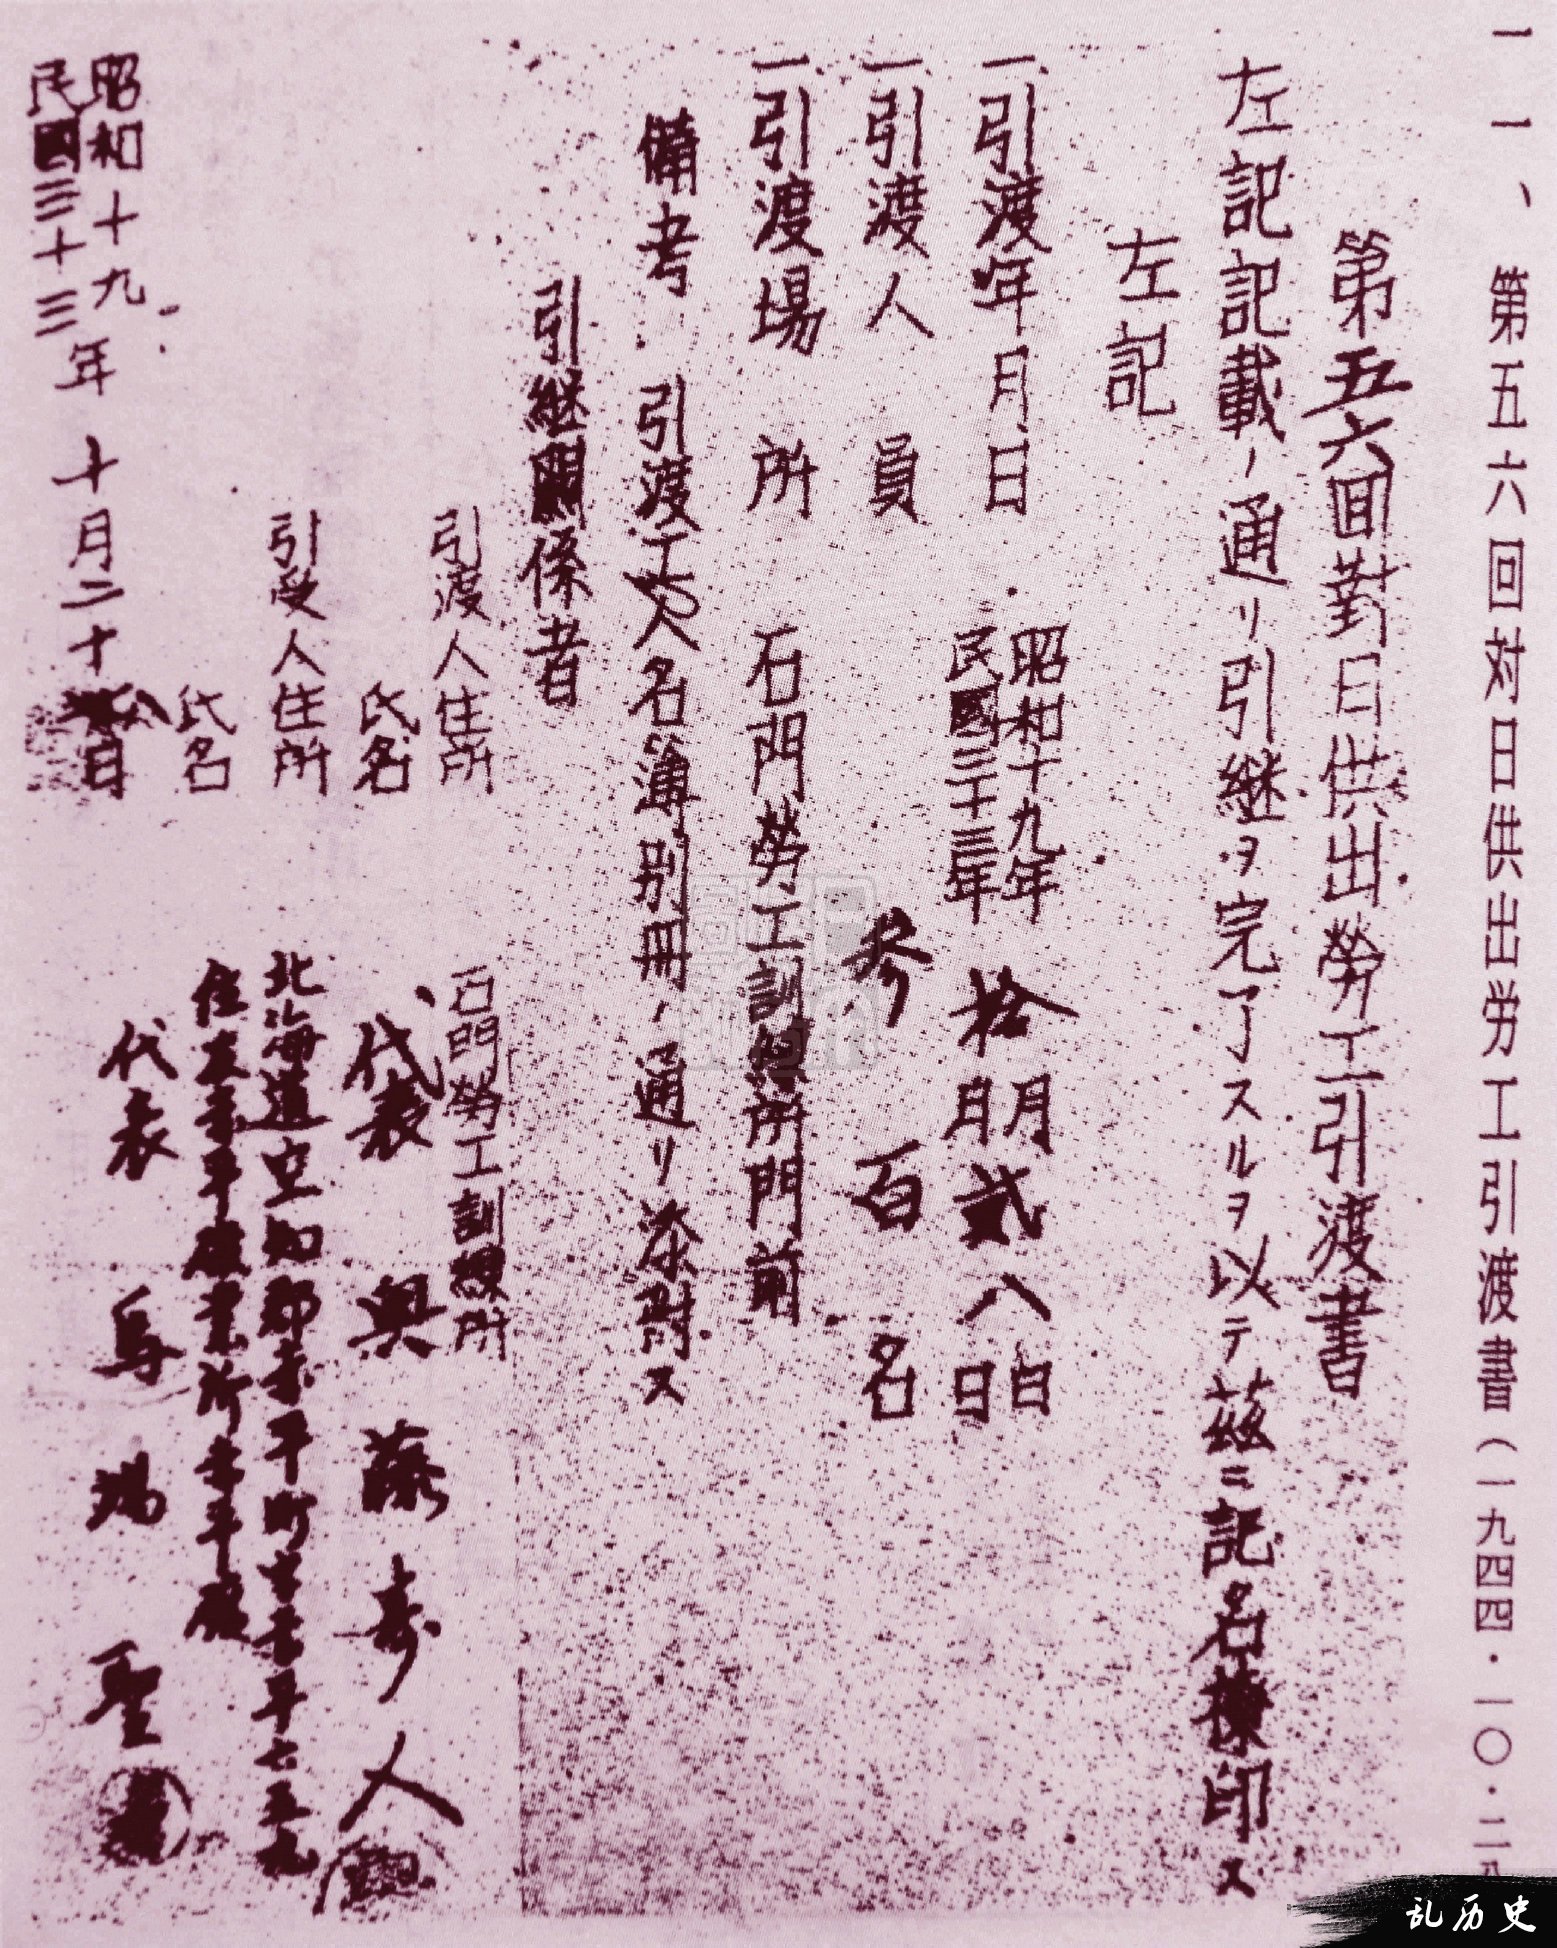 一一、第五六回対日供出労工引渡書（一九四四·一〇·二八
第五六回對日供出勞工引渡書
左記記載ノ通リ引継ヲ完了スルヲ以テ茲ニ記名捺印ス
左記
一引渡年月日 昭和十九年 拾月弐八日
民國三十三年 月 日
一引渡人員 参百名
一引渡場所 石門勞工訓練所門前
備考 引渡工人名簿別冊ノ通リ添附ス
引継関係者
引渡人住所 石門勞工訓練所
氏名 代表 藤壽人
引受人住所 北海道空知郡赤平町字赤平七五九
住友赤平礦業所赤平礦
氏名 代表 瑞聖
昭和十九
民國三十三年 十月二十 日
乱历史